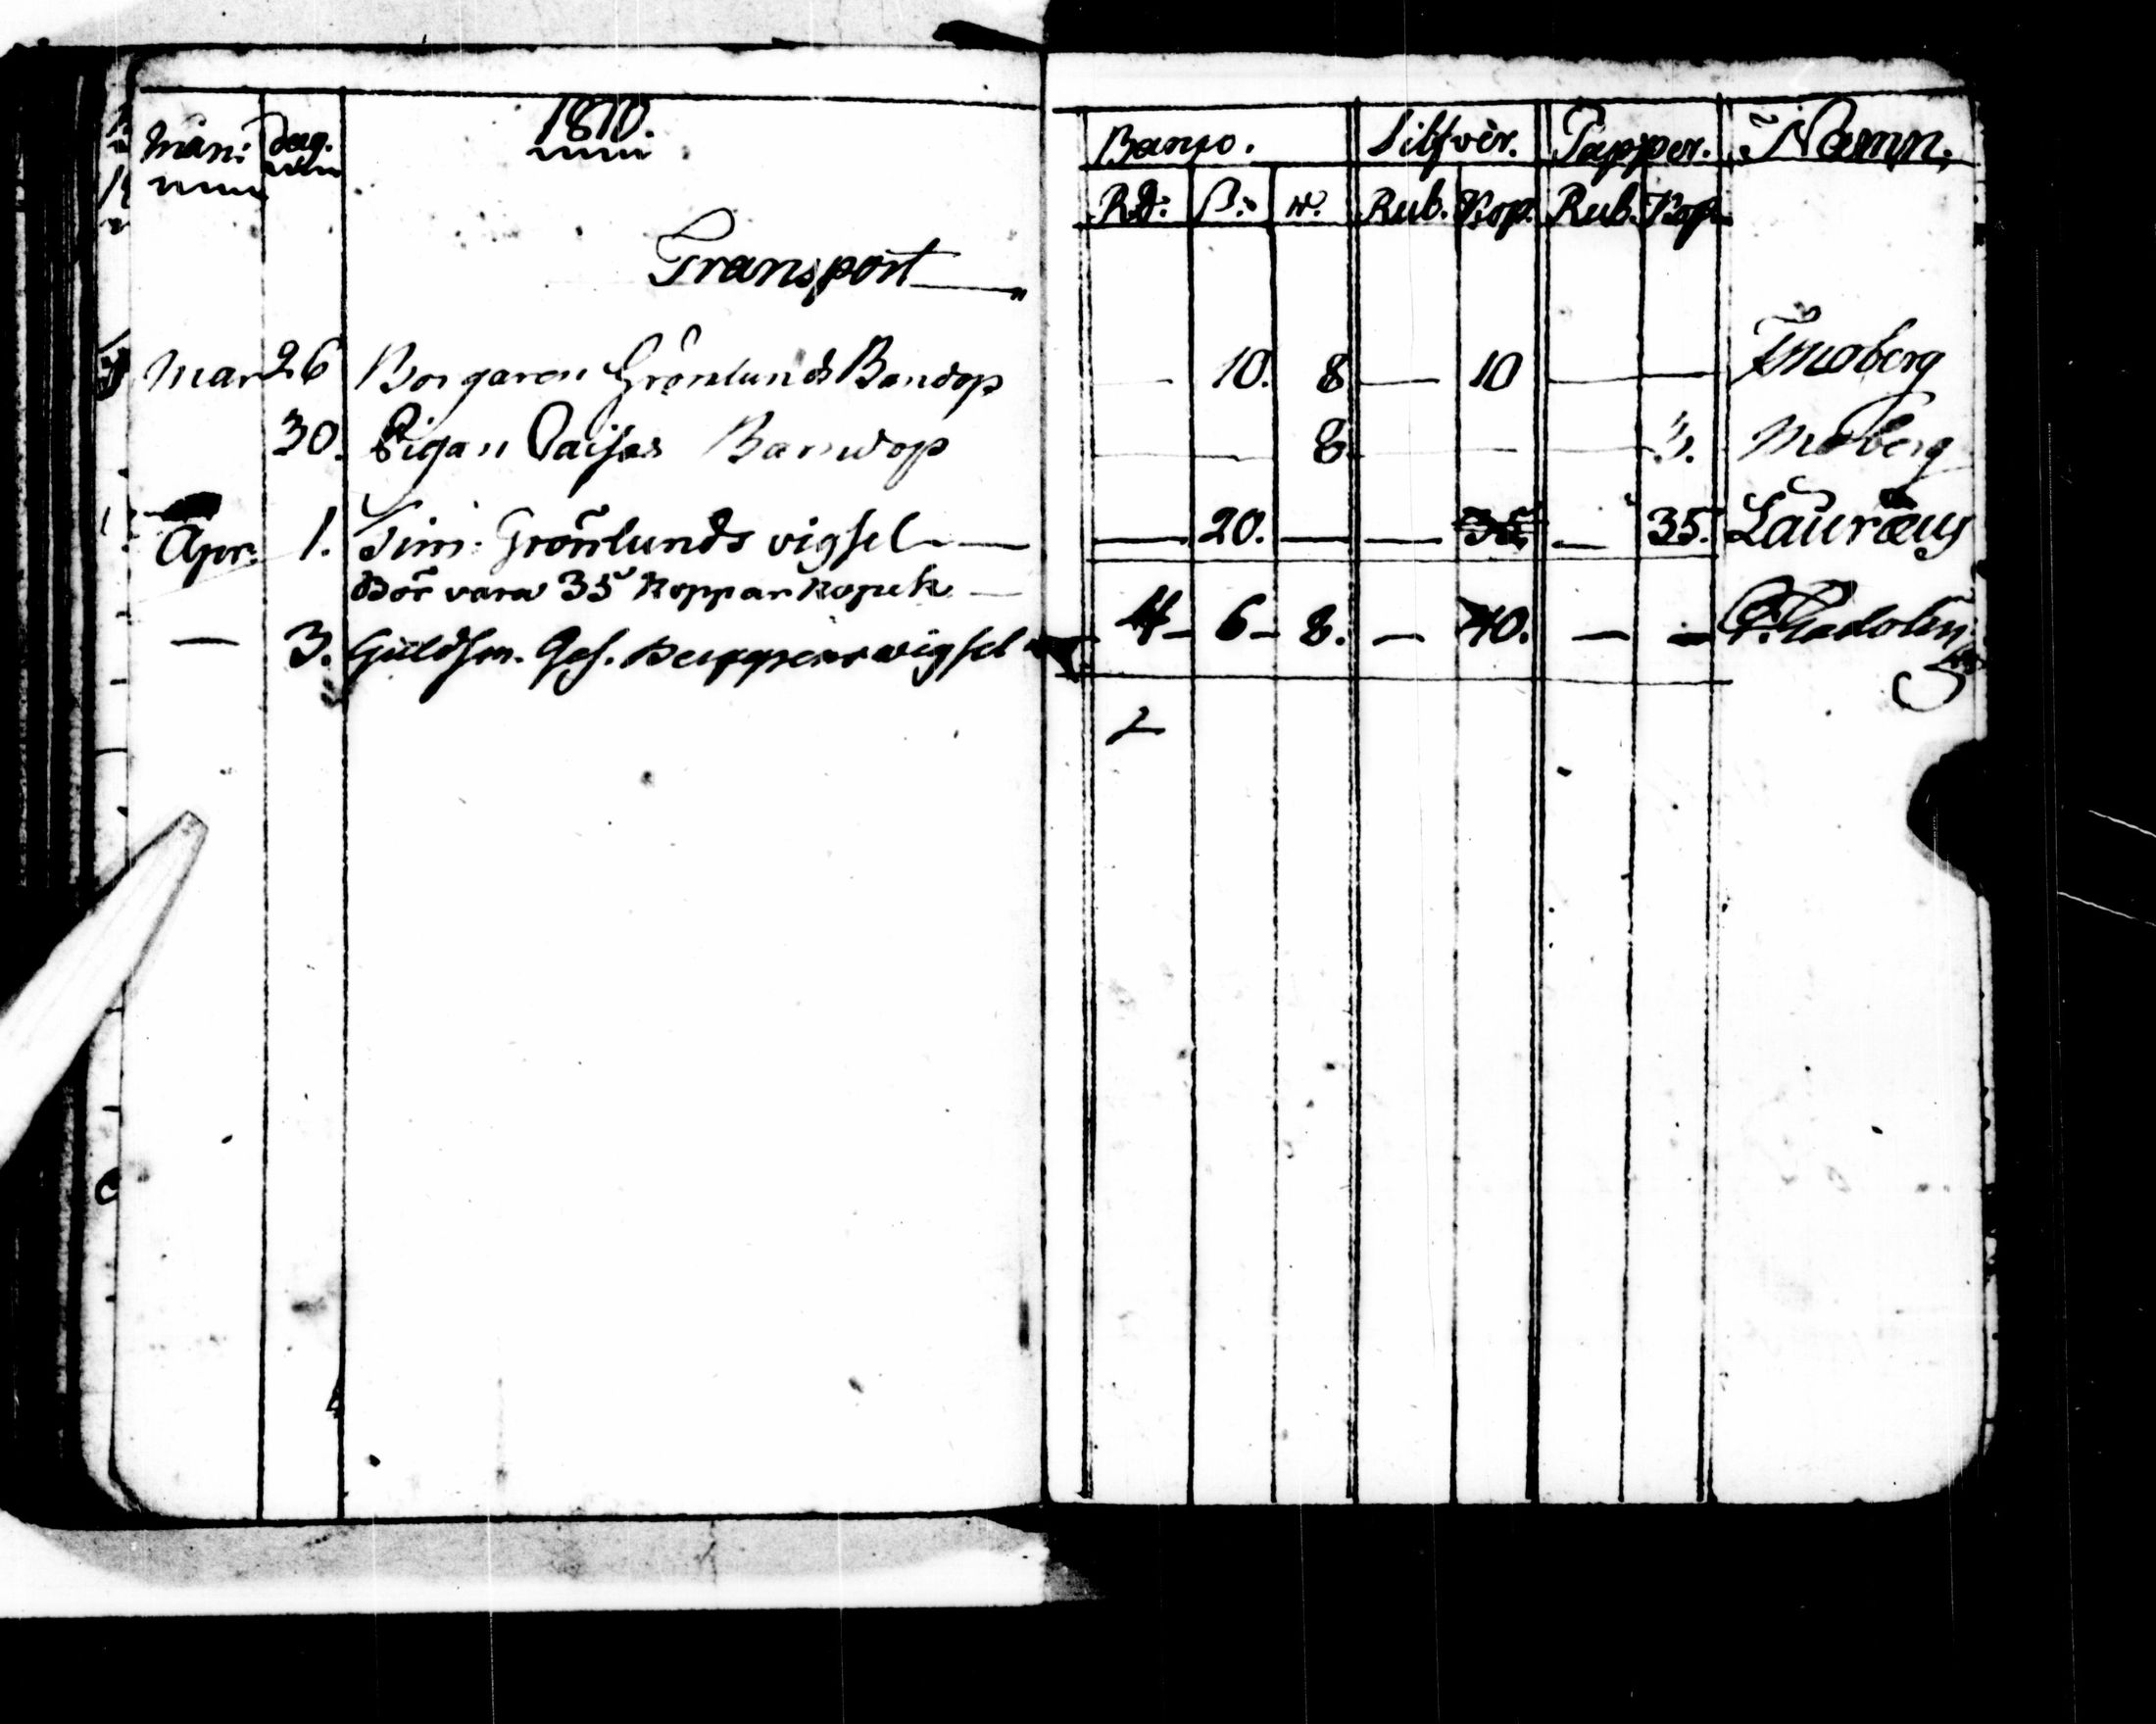 Mån: Dag. 1810. Banco. Silfver. Papper. Namn.
Rd: ß: rs. Rub. Kop. Rub. Kop.
Transport
Mar 26 Borgaren Grönlunds Barndop — 10. 8 — 10 — — Moberg
30. Pigan Caisas Barndop — — 8. — — — 3. Moberg
Apr. 1. Sim. Grönlunds vigsel — — 20. — — 35 — 35. Lauræus
Bör vara 35 Koppar kopek —
— 3. Guldsm. Ges. vigsel 4 - 6 - 8. — 40. — — Gadolin
2